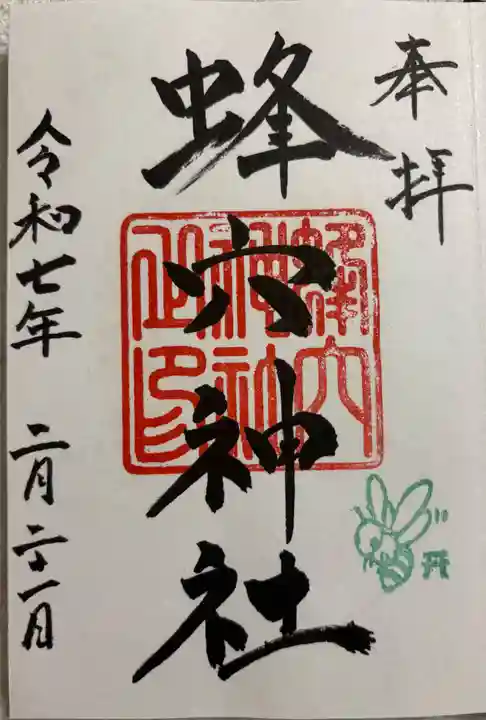 奉拝
蜂穴神社
蜂穴神社之印
令和七年 二月二十一日